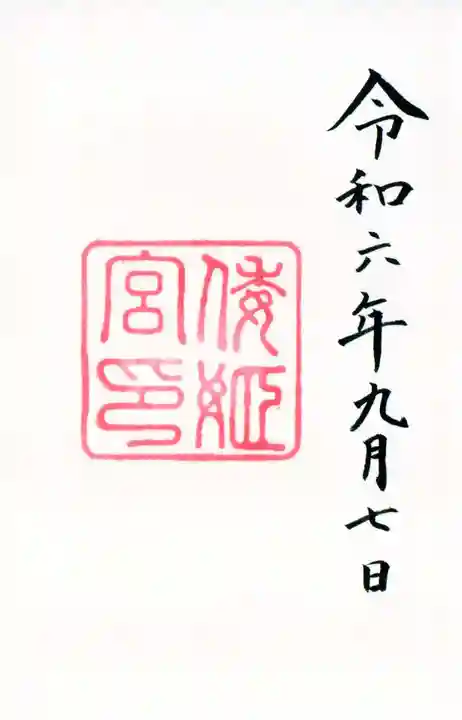 令和六年九月七日
倭姫
宮印